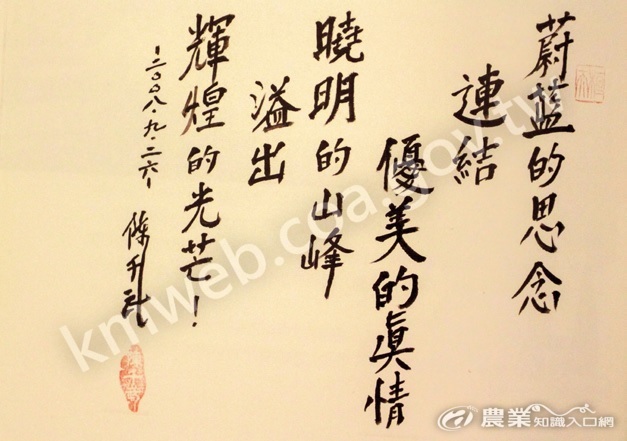 蔚藍的思念
連結
優美的真情
曉明的山峰
溢出
輝煌的光芒！
－二〇〇八．九．二六－
kmweb.coa.gov.tw
農業知識入口網